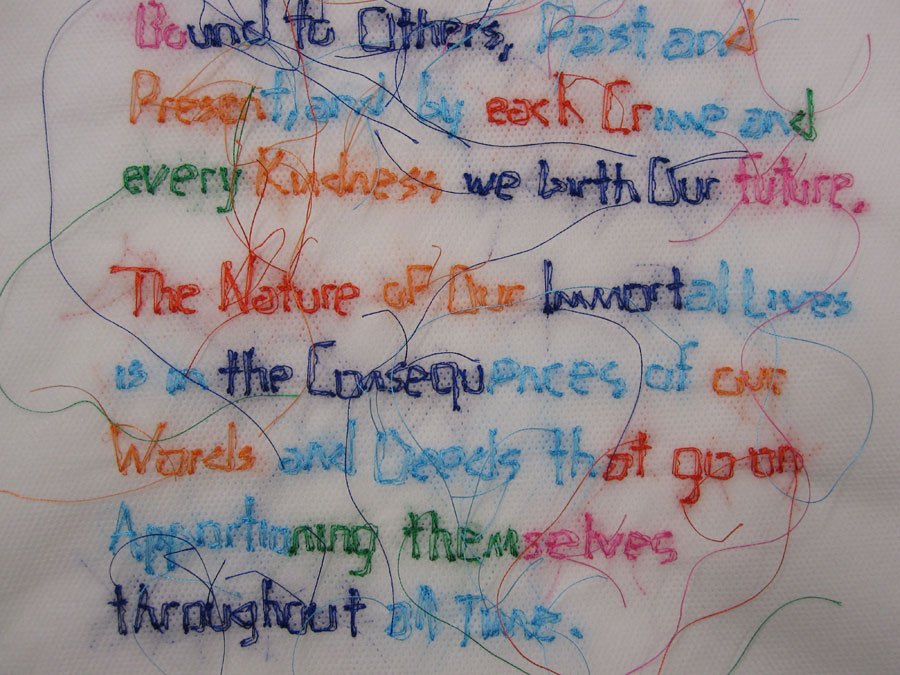 Bound to Others, Past and
Present, and by each Crime and
every Kindness, we birth Our future.
The Nature of Our Immortal Lives
is in the Consequences of our
Words and Deeds that go on
Apportionning themselves
throughout all Time.